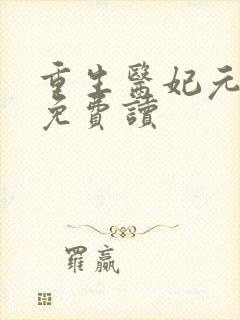 重生醫妃元
免費讀
羅贏